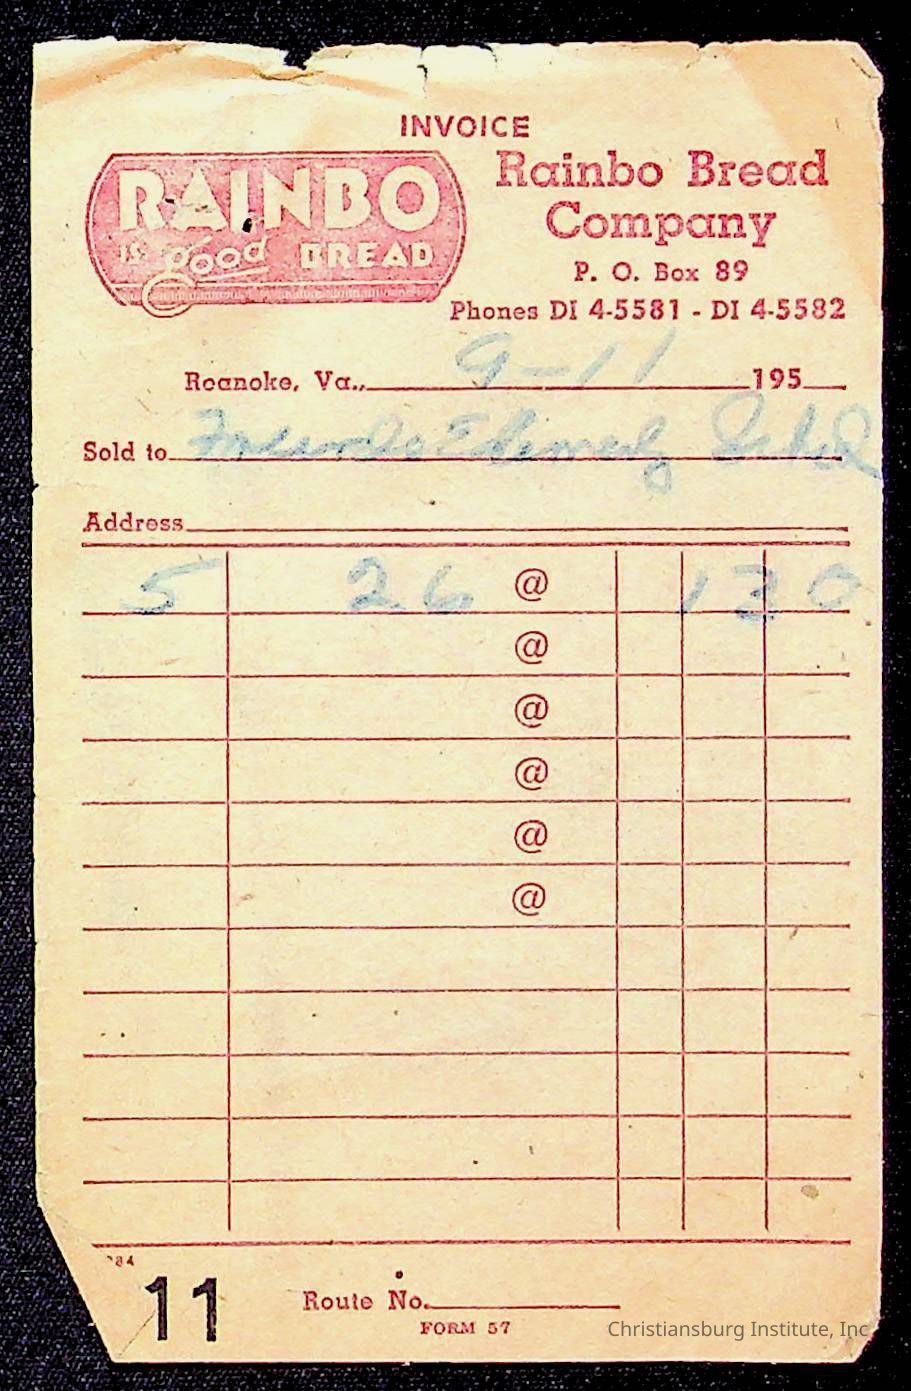 INVOICE
RAINBO
IS good BREAD
Rainbo Bread
Company
P. O. Box 89
Phones DI 4-5581 - DI 4-5582
Roanoke, Va., 9-11 195
Sold to
Address
5 26 @ 1 30
@
@
@
@
@
11
Route No.
FORM 57
Christiansburg Institute, Inc